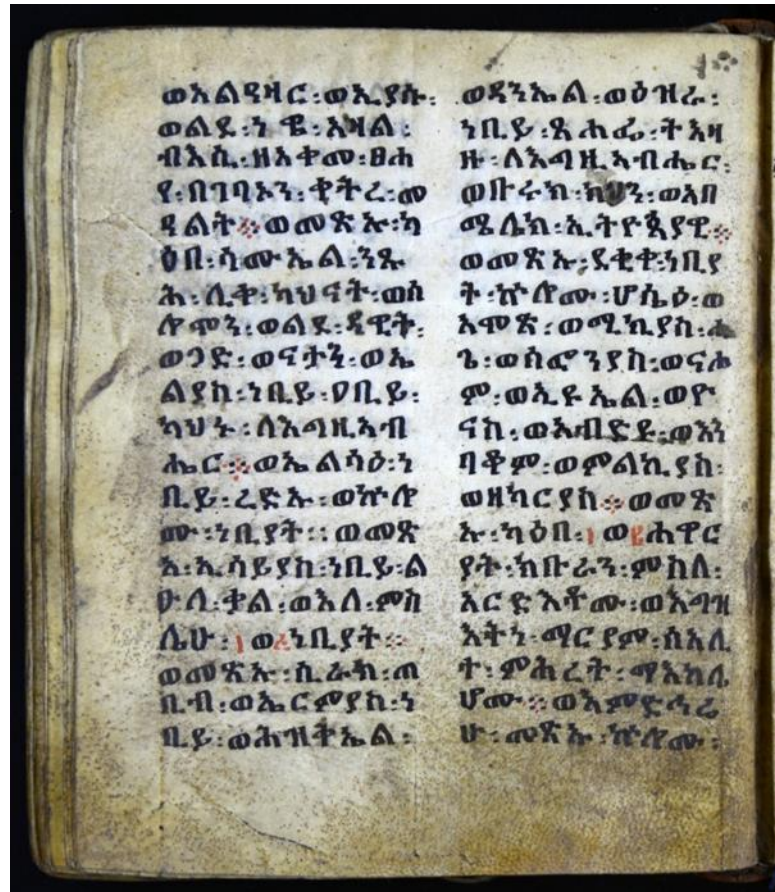 ወአልዓዛር፡ወኢያሱ፡
ወልደ፡ነዌ፡አዛል፡
ብእሲ፡ዘአቀመ፡ፀሐ
የ፡በገባኦን፡ቀትረ፡መ
ዓልት፨ወመጽኡ፡ካ
ዕበ፡ሳሙኤል፡ንጹ
ሕ፡ሊቀ፡ካህናት፡ወሰ
ሎሞን፡ወልደ፡ዳዊት፡
ወጋድ፡ወናታን፡ወኤ
ልያስ፡ነቢይ፡ዐቢይ፡
ካህኑ፡ለእግዚአብ
ሔር፨ወኤልሳዕ፡ነ
ቢይ፡ረድኡ፡ወኵሎ
ሙ፡ነቢያት፡፡ወመጽ
አ፡ኢሳይያስ፡ነቢይ፡ል
ዑለ፡ቃል፡ወእለ፡ምስ
ሌሁ፡፲ወ፭ነቢያት፨
ወመጽኡ፡ሲራክ፡ጠ
ቢብ፡ወኤርምያስ፡ነ
ቢይ፡ወሕዝቅኤል፡
ወዳንኤል፡ወዕዝራ፡
ነቢይ፡ጸሐፌ፡ትእዛ
ዙ፡ለእግዚአብሔር፡
ወቡሩክ፡ካህን፡ወአቤ
ሜሌክ፡ኢትዮጵያዊ፨
ወመጽኡ፡ደቂቀ፡ነቢያ
ት፡ኵሎሙ፡ሆሴዕ፡ወ
አሞጽ፡ወሚኪያስ፡ሐ
ጌ፡ወሶፎንያስ፡ወናሖ
ም፡ወኢዩኤል፡ወዮ
ናስ፡ወአብድዩ፡ወእን
ባቆም፡ወምልኪያስ፡
ወዘካርያስ፨ወመጽ
ኡ፡ካዕበ፡፲ወ፪ሐዋር
ያት፡ክቡራን፡ምስለ፡
አርድእቶሙ፡ወእግዝ
እትነ፡ማርያም፡ሰአሊ
ተ፡ምሕረት፡ማእከሌ
ሆሙ፨ወእምድኅሬ
ሁ፡መጽኡ፡ኵሎሙ፡